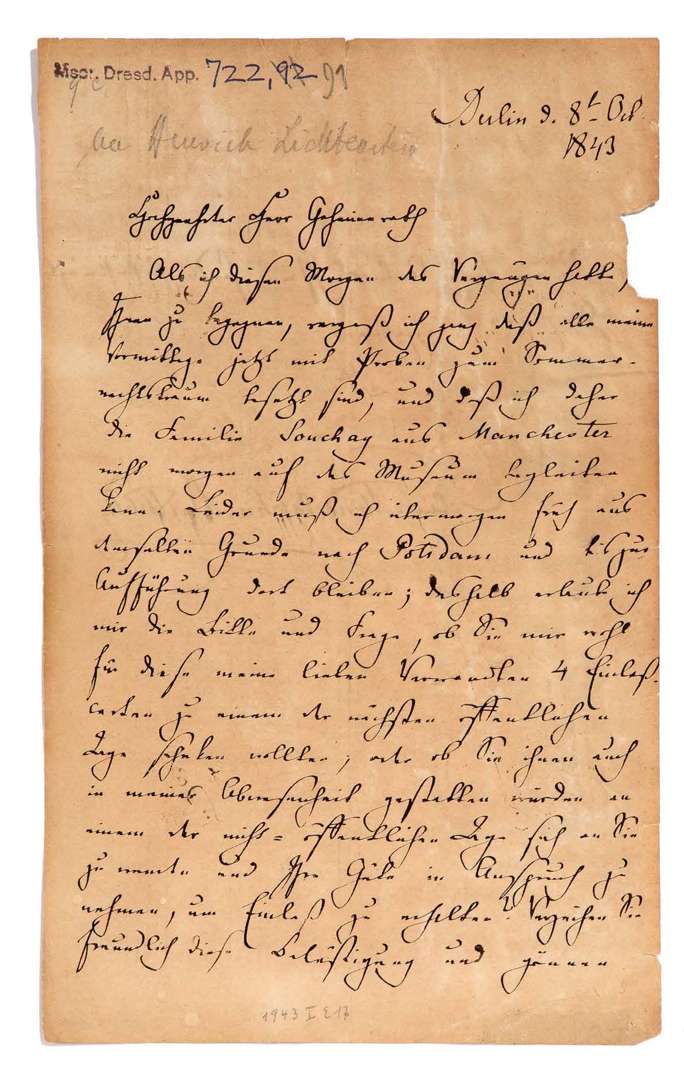 Mscr. Dresd. App. 722, 92 91
an Heinrich Lichtenstein
Berlin d. 8t Oct.
1843
Hochgeehrter Herr Geheimerath
Als ich diesen Morgen das Vergnügen hatte,
Ihnen zu begegnen, vergaß ich ganz daß alle meine
Vormittage jetzt mit Proben zum Sommer-
nachtstraum besetzt sind, und daß ich daher
die Familie Souchay aus Manchester
nicht morgen auf das Museum begleiten
kann. Leider muß ich übermorgen früh aus
demselben Grunde nach Potsdam und bis zur
Aufführung dort bleiben; deshalb erlaube ich
mir die Bitte und Frage, ob Sie mir wohl
für diese meine lieben Verwandten 4 Einlaß-
carten zu einem der nächsten öffentlichen
Tage schenken wollten, oder ob Sie ihnen auch
in meiner Abwesenheit gestatten würden an
einem der nicht=öffentlichen Tage sich an Sie
zu wenden und Ihre Güte in Anspruch zu
nehmen, um Einlaß zu erhalten? Verzeihen Sie
freundlich diese Belästigung und gönnen
1943 I E 17